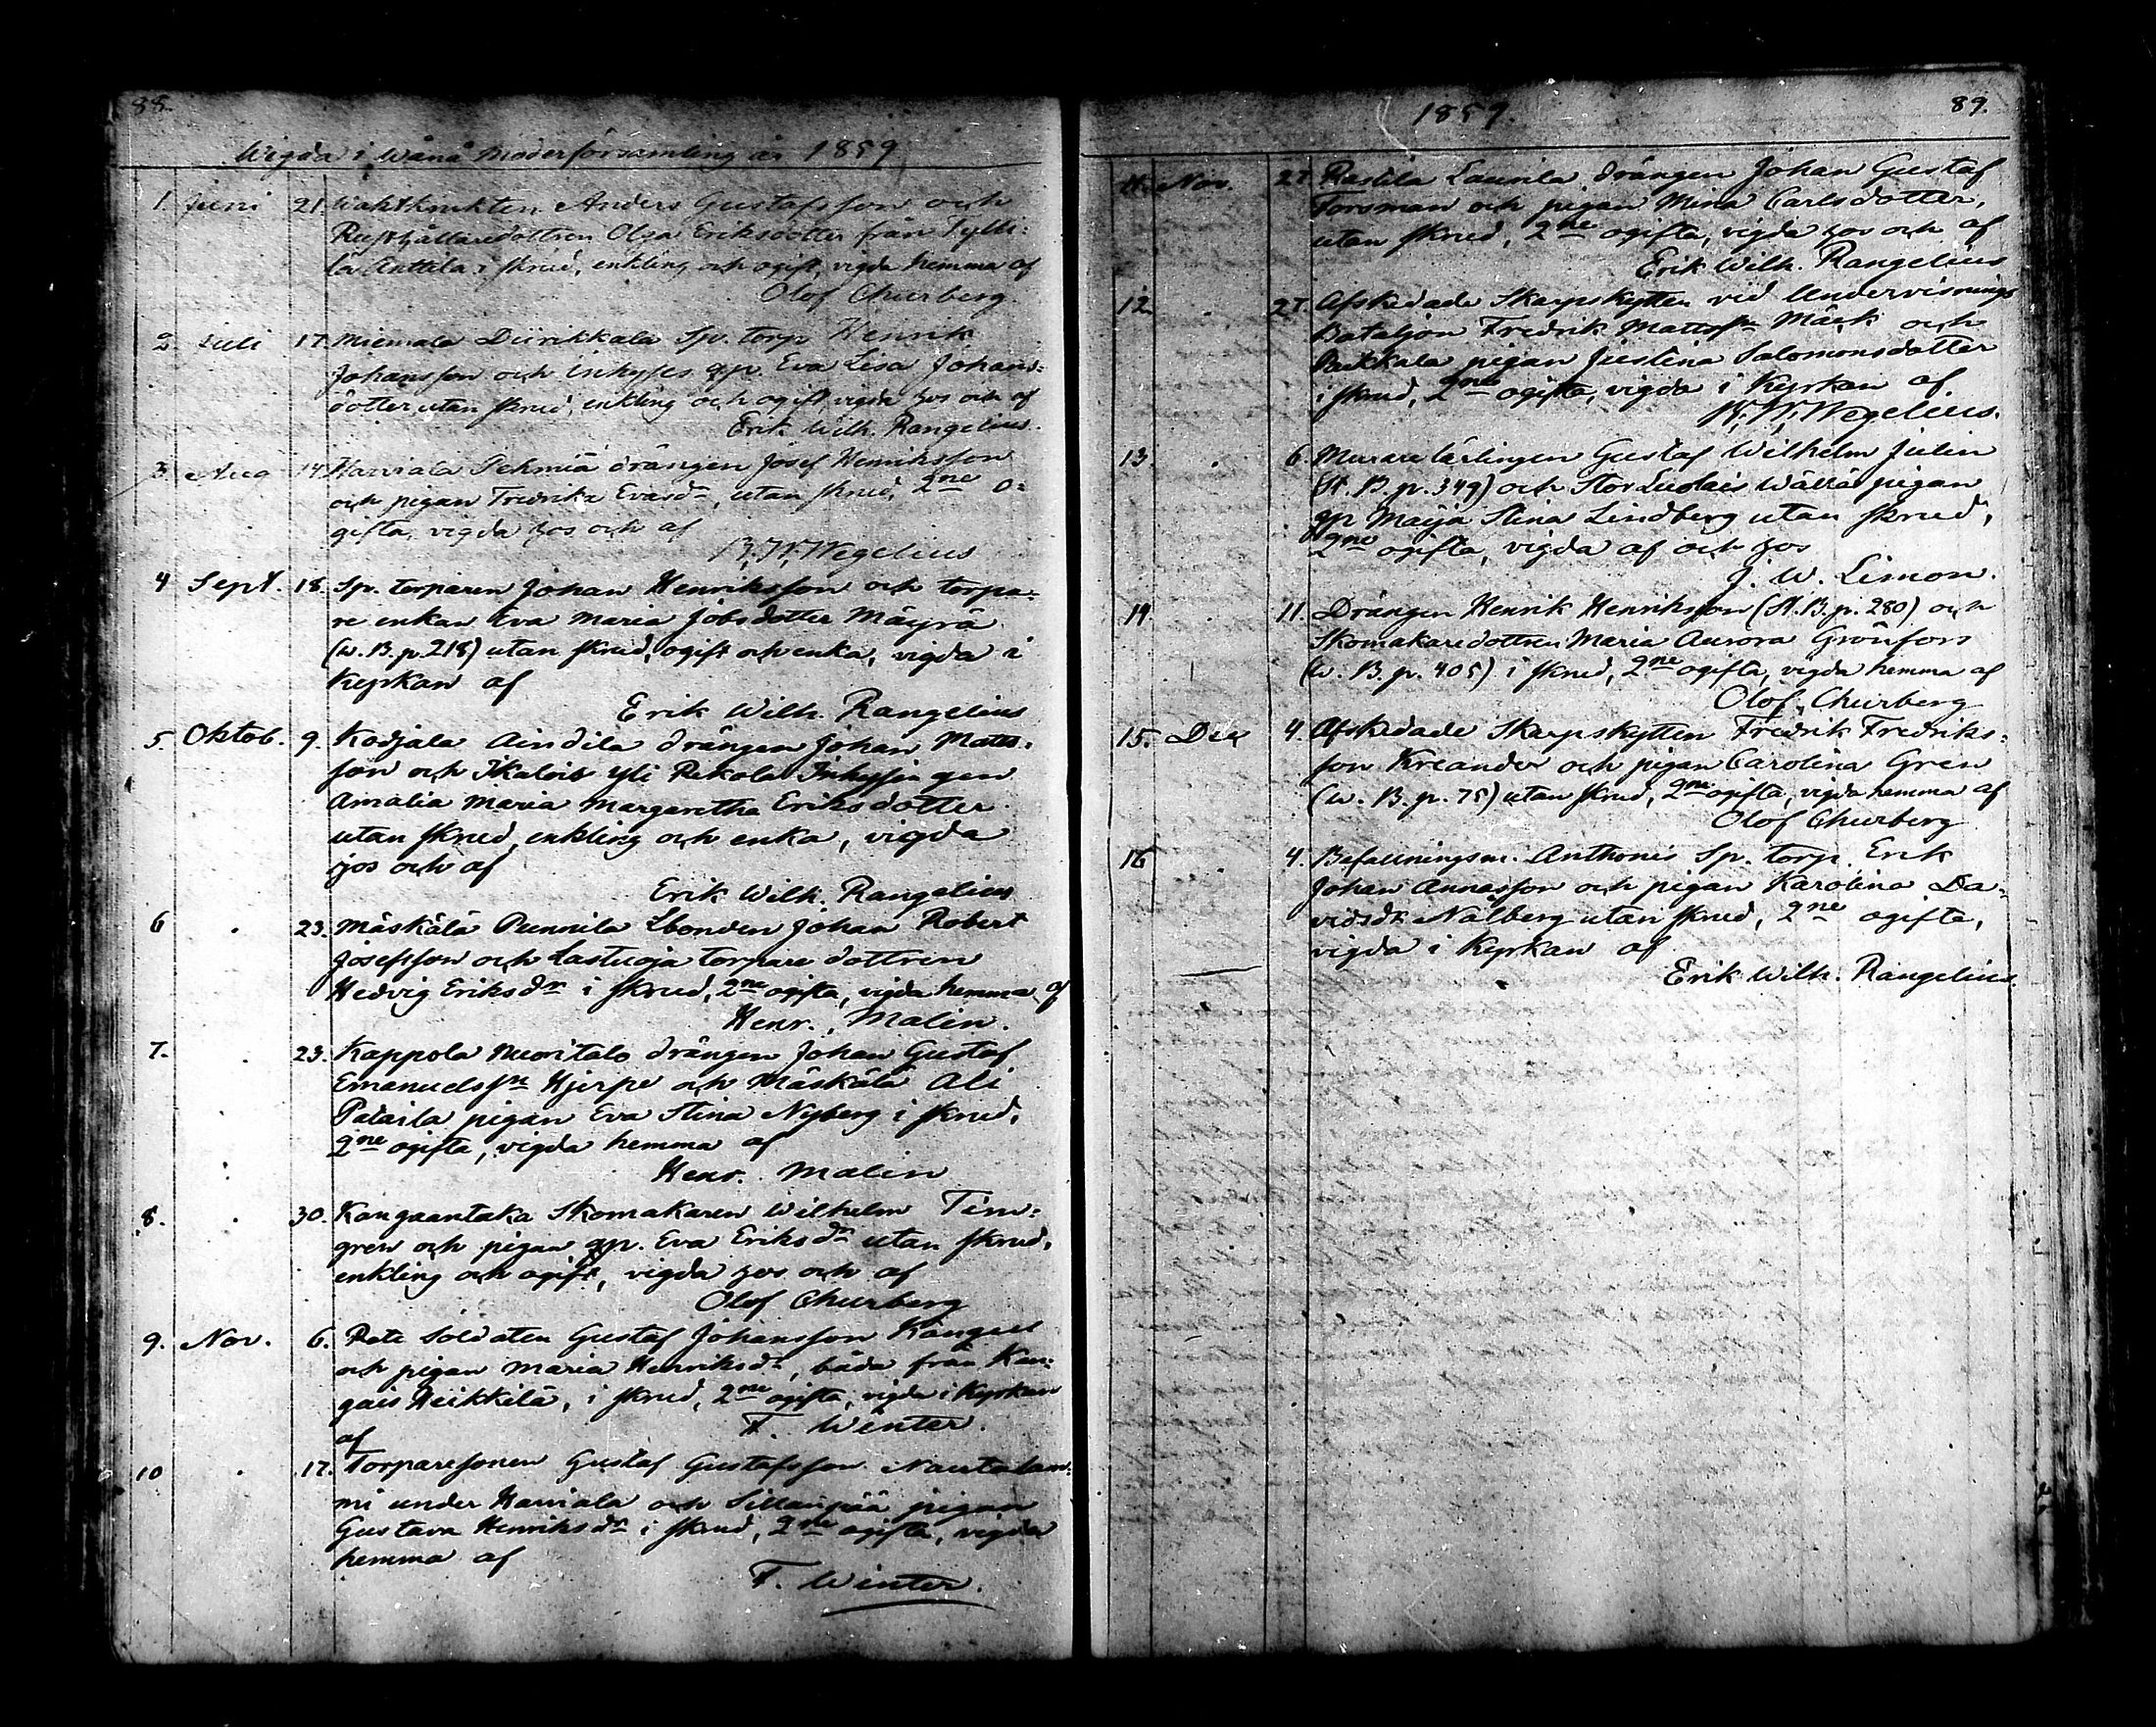 88.
Wigda i Wånå Moderförsamling år 1859
1. Juni 21. Wakthnekten Anders Gustafsson och
Rusthållaredottren Olga Eriksdotter från
Anttila i skrud, enkling och ogift, vigda hemma af
Olof Churberg.
2. Juli 17. Miemala Diirikkala Sp. torp Henrik
Johansson och Inhyses qp. Eva Lisa Johans:
dotter utan skrud, enkling och ogift vigda hos och af
Erik Wilh. Rangelius.
3. Aug 14. Harviala Pehmiä drängen Josef Henriksson
och pigan Fredrika Evasdr, utan skrud, 2ne o:
gifta, vigda hos och af
K. W. Wegelius
4 Sept. 18. Sp. torparen Johan Henriksson och torpa:
re enkan Eva Maria Jobsdotter Mäyrä
(W. B. p. 218) utan skrud, ogift och enka, vigda i
Kyrkan af
Erik Wilh. Rangelius
5. Oktob. 9. Kodjala Aindila drängen Johan Mats:
son och Ikalois Yli Rekola Inhyses qn
Amalia Maria Margaretha Eriksdotter
utan skrud, enkling och enka, vigda
hos och af
Erik Wilh. Rangelius
6 . 23. Mäskälä Punnila Lbonden Johan Robert
Josefsson och Lastuoja torpare dottren
Hedvig Eriksdr i skrud, 2ne ogifta, vigda hemma af
Henr. Malin.
7. . 23. Kappola Uusitalo drängen Johan Gustaf
Emanuelssn Hjerpe och Mäskälä Ali
Pataila pigan Eva Stina Nyberg i skrud,
2ne ogifta, vigda hemma af
Henr. Malin
8. . 30. Kangaantaka Skomakaren Wilhelm Tim:
gren och pigan qp. Eva Eriksdr utan skrud,
enkling och ogift, vigda hos och af
Olof Churberg
9. Nov. 6. Rote Soldaten Gustaf Johansson Kangas
och pigan Maria Henriksdr, båda från Kan:
gais Heikkilä, i skrud, 2ne ogifta, vigda i Kyrkan
af F. Winter.
10 . 17. Torparesonen Gustaf Gustafsson Nautalam:
mi under Harviala och Sillanpää pigan
Gustava Henriksdr i skrud, 2ne ogifta, vigda
hemma af
F. Winter.
1859. 89.
11. Nov. 27 Rastila Laurila drängen Johan Gustaf
Forsman och pigan Mina Carlsdotter,
utan skrud, 2ne ogifta, vigda hos och af
Erik Wilh. Rangelius
12 . 27. Afskedade Skarpskytten vid Undervisnings
Bataljon Fredrik Mattssn Mäck och
Paikkala pigan Justina Salomonsdotter
i skrud, 2ne ogifta, vigda i Kyrkan af
K. W. Wegelius.
13. . 6. Murare lärlingen Gustaf Wilhelm Julin
(St. B. p. 349) och Stor Luolais Wällä pigan
qp Maija Stina Lindberg utan skrud,
2ne ogifta, vigda af och hos
J. W. Limon.
14. . 11. Drängen Henrik Henriksson (St. B. p. 280) och
Skomakaredottren Maria Aurora Grönfors
(W. B. p. 405) i skrud, 2ne ogifta, vigda hemma af
Olof Churberg
15. Dec 4. Afskedade Skarpskytten Fredrik Fredriks:
son Kreander och pigan Carolina Gren
(W. B. p. 75) utan skrud, 2ne ogifta, vigda hemma af
Olof Churberg
16 . 4. Befallningsm. Anthonis Sp. torp. Erik
Johan Annasson och pigan Karolina Da:
vidsdr Nålberg utan skrud, 2ne ogifta,
vigda i Kyrkan af
Erik Wilh. Rangelius.